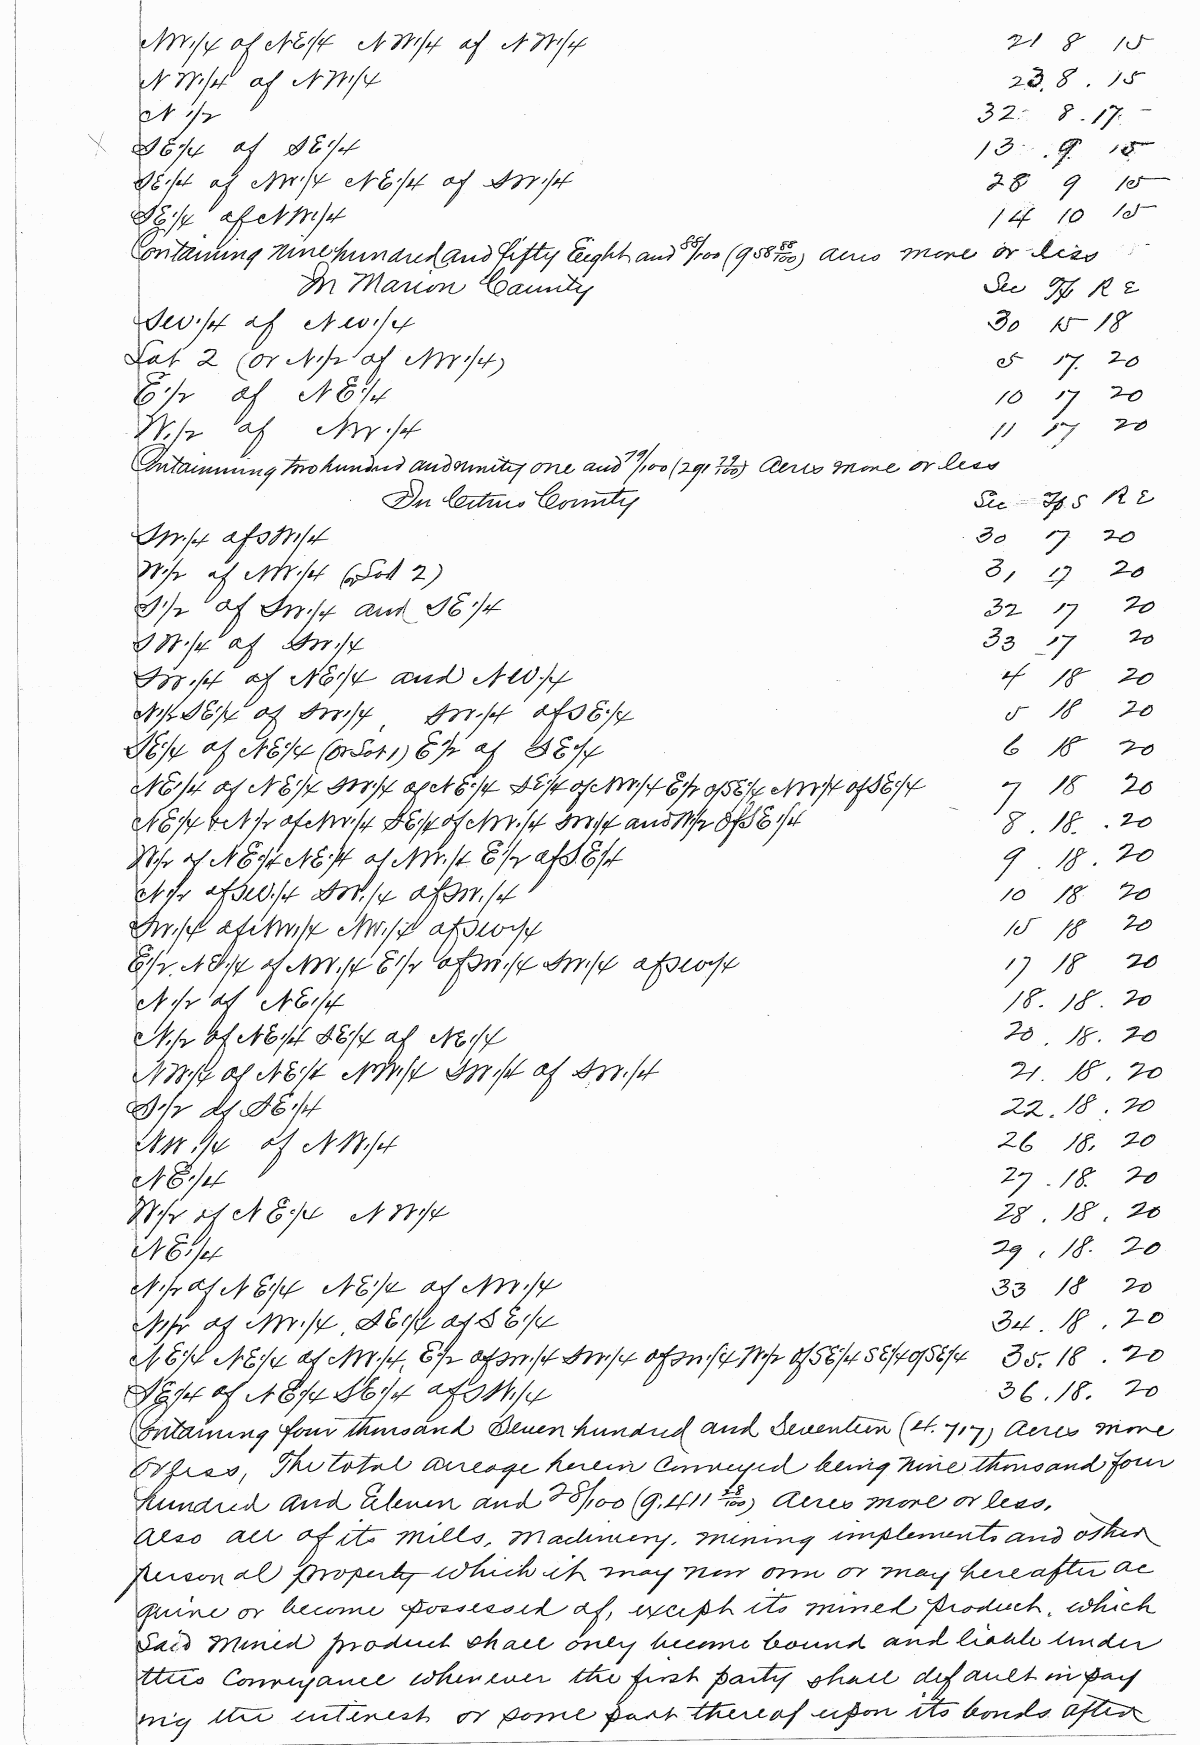 NW1/4 of NE1/4 NW1/4 of NW1/4 21 8 15
NW1/4 of NW1/4 23. 8. 15
N1/2 32 8. 17.
SE1/4 of SE1/4 13 9. 15
SE1/4 of NW1/4 NE1/4 of SW1/4 28 9 15
SE1/4 of NW1/4 14 10 15
Containing nine hundred and fifty Eight and 88/100 (958 88/100) acres more or less
In Marion County Sec Tp R E
SW1/4 of NW1/4 30 15 18
Lot 2 (or N1/2 of NW1/4) 5 17. 20
E1/2 of NE1/4 10 17 20
W1/2 of NW1/4 11 17 20
Containning two hundred and ninity one and 79/100 (291 79/100) Acres more or less
In Citrus County Sec Tp S R E
SW1/4 of SW1/4 30 17 20
W1/2 of NW1/4 (or Lot 2) 31 17 20
S1/2 of SW1/4 and SE1/4 32 17 20
SW1/4 of SW1/4 33 17 20
SW1/4 of NE1/4 and NW1/4 4 18 20
N1/2 SE1/4 of SW1/4 SW1/4 of SE1/4 5 18 20
SE1/4 of NE1/4 (or Lot 1) E1/2 of SE1/4 6 18 20
NE1/4 of NE1/4 SW1/4 of NE1/4 SE1/4 of NW1/4 E1/2 of SE1/4 NW1/4 of SE1/4 7 18 20
NE1/4 & N1/2 of NW1/4 SE1/4 of NW1/4 SW1/4 and W1/2 of SE1/4 8. 18. 20
W1/2 of NE1/4 NE1/4 of NW1/4 E1/2 of SE1/4 9. 18. 20
N1/2 of SW1/4 SW1/4 of SW1/4 10 18 20
SW1/4 of NW1/4 NW1/4 of SW1/4 15 18 20
E1/2. NE1/4 of NW1/4 E1/2 of SW1/4 SW1/4 of SW1/4 17 18 20
N1/2 of NE1/4 18. 18. 20
N1/2 of NE1/4 SE1/4 of NE1/4 20. 18. 20
NW1/4 of NE1/4 NW1/4 SW1/4 of SW1/4 21. 18. 20
S1/2 of SE1/4 22. 18. 20
NW1/4 of NW1/4 26 18. 20
NE1/4 27. 18. 20
W1/2 of NE1/4 NW1/4 28. 18. 20
NE1/4 29. 18. 20
N1/2 of NE1/4 NE1/4 of NW1/4 33 18 20
N1/2 of NW1/4. SE1/4 of SE1/4 34. 18. 20
NE1/4 NE1/4 of NW1/4, E1/2 of SW1/4 SW1/4 of SW1/4 W1/2 of SE1/4 SE1/4 of SE1/4 35. 18. 20
SE1/4 of NE1/4 SE1/4 of SW1/4 36. 18. 20
Containing four thousand Seven hundred and Seventeen (4.717) Acres more
or less, The total acreage herein Conveyed being nine thousand four
hundred and Eleven and 28/100 (9.411 28/100) Acres more or less.
Also all of its mills, Machinery, mining implements and other
personal property which it may now own or may hereafter ac
quire or become possessed of, except its mined product, which
said mined product shall only become bound and liable under
this Conveyance whenever the first party shall default in pay
ing the interest or some part thereof upon its bonds after